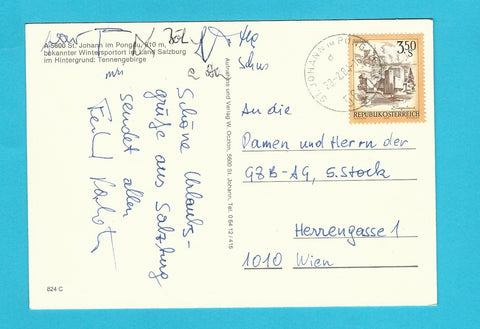 A-5600 St. Johann im Pongau, 610 m,
bekannter Wintersportort im Land Salzburg
im Hintergrund: Tennengebirge
Schöne Urlaubs-
grüße aus Salzburg
sendet allen
Aufnahme und Verlag W. Oczlon, 5600 St. Johann, Tel. 0 64 12 / 415
824 C
ST. JOHANN IM PONGAU
3.50
S
REPUBLIK ÖSTERREICH
An die
Damen und Herrn der
GZB-AG, 5. Stock
Herrengasse 1
1010 Wien